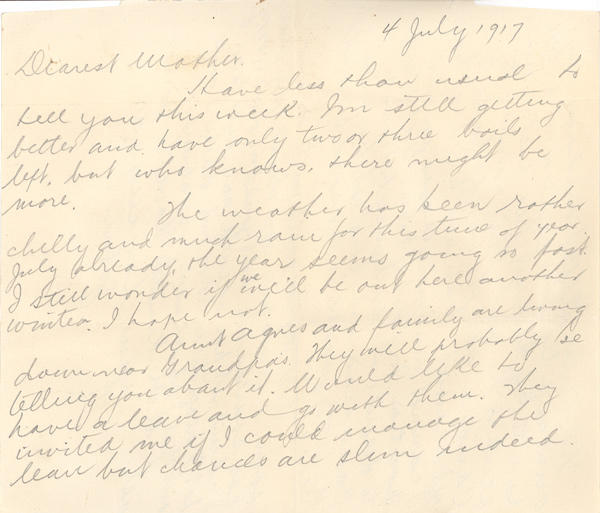 4 July 1917
Dearest Mother.
Have less than usual to
tell you this week. I'm still getting
better and have only two or three boils
left, but who knows, there might be
more. The weather has been rather
chilly and much rain for this time of year.
July already, the year seems going so fast.
I still wonder if we we'll be out here another
winter. I hope not.
Aunt Agnes and family are living
down near Grandpa's. They will probably be
telling you about it. Would like to
have a leave and go with them. They
invited me if I could manage the
leave but chances are slim indeed.